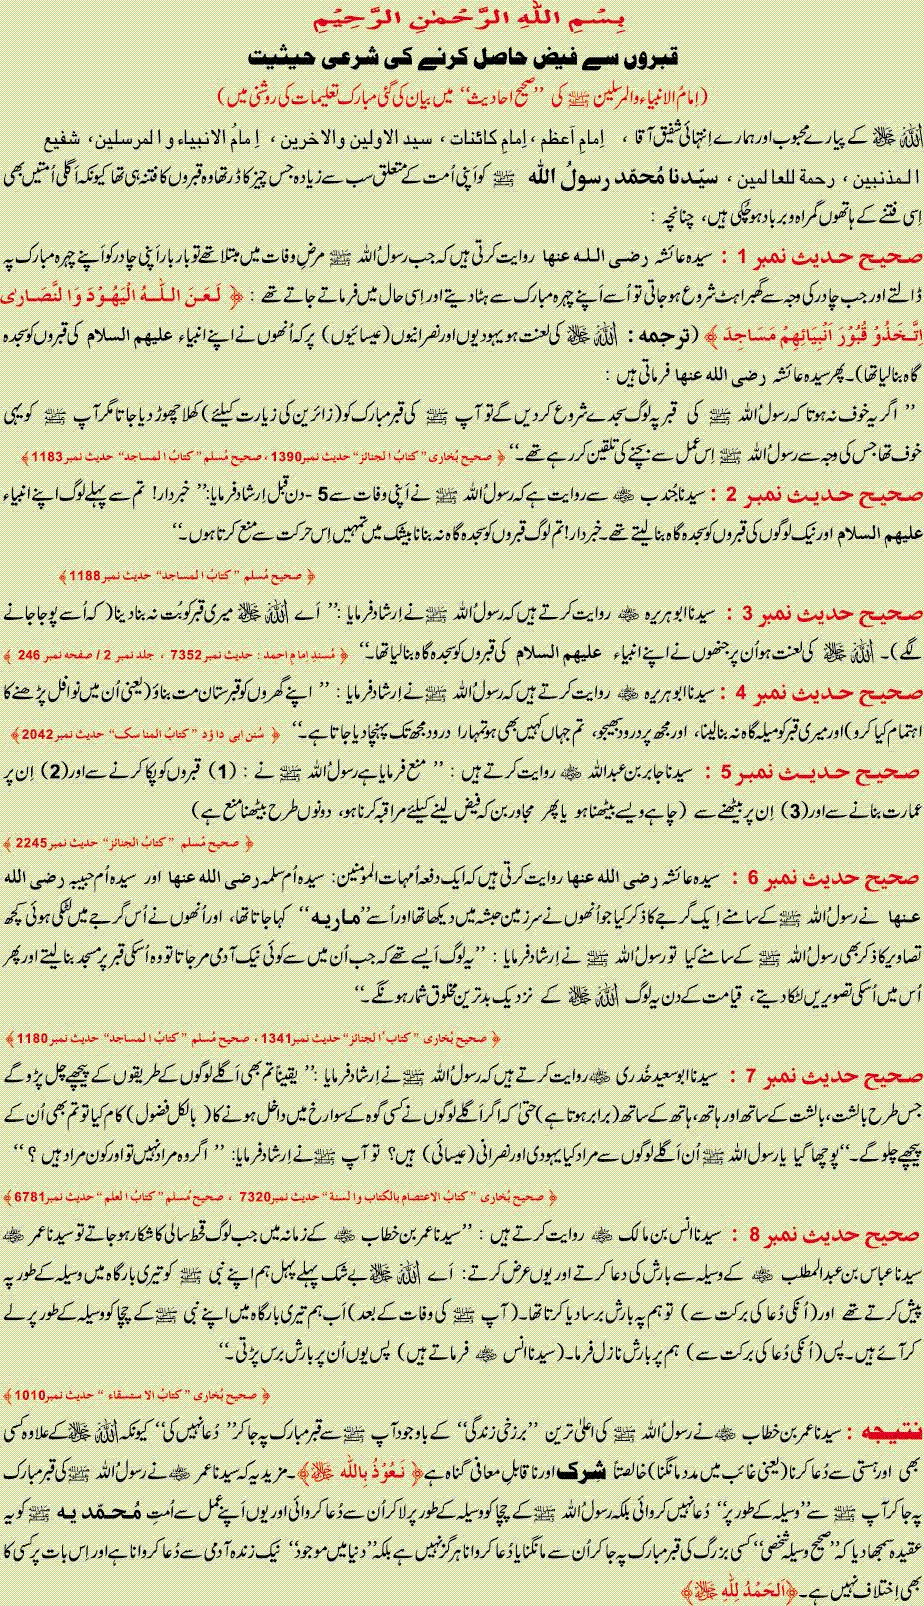 بِسْمِ اللهِ الرَّحْمٰنِ الرَّحِيْمِ
قبروں سے فیض حاصل کرنے کی شرعی حیثیت
(اِمامُ الانبیاء والمرسلین ﷺ کی ’’صحیح احادیث‘‘ میں بیان کی گئی مبارک تعلیمات کی روشنی میں)
اللہ ﷻ کے پیارے محبوب اور ہمارے اِنتہائی شفیق آقا ، اِمامِ اَعظم ، اِمامِ کائنات ، سید الاولین والآخرین ، اِمامُ الانبیاء و المرسلین، شفیع
المذنبین ، رحمة للعالمین ، سیّدنا مُحمّد رسولُ الله ﷺ کو اَپنی اُمت کے متعلق سب سے زیادہ جس چیز کا ڈر تھا وہ قبروں کا فتنہ ہی تھا کیونکہ اَگلی اُمتیں بھی
اِسی فتنے کے ہاتھوں گمراہ و برباد ہو چُکی ہیں، چنانچہ :
صحیح حدیث نمبر 1 : سیدہ عائشہ رضی الله عنها روایت کرتی ہیں کہ جب رسولُ اللہ ﷺ مرضِ وفات میں مبتلا تھے تو بار بار اَپنی چادر کو اَپنے چہرہ مبارک پہ
ڈالتے اور جب چادر کی وجہ سے گھبراہٹ شروع ہو جاتی تو اُسے اَپنے چہرہ مبارک سے ہٹا دیتے اور اِسی حال میں فرماتے جاتے تھے : ﴿ لَعَنَ اللّٰهُ الْيَهُوْدَ وَالنَّصَارىٰ
اِتَّخَذُوْ قُبُوْرَ اَنْبِيَائِهِمْ مَسَاجِدَ ﴾ (ترجمه : اللہ ﷻ کی لعنت ہو یہودیوں اور نصرانیوں (عیسائیوں) پر کہ اُنھوں نے اپنے انبیاء علیهم السلام کی قبروں کو سجدہ
گاہ بنا لیا تھا)۔ پھر سیدہ عائشہ رضی الله عنها فرماتی ہیں :
’’ اگر یہ خوف نہ ہوتا کہ رسولُ اللہ ﷺ کی قبر پہ لوگ سجدے شروع کر دیں گے تو آپ ﷺ کی قبر مبارک کو (زائرین کی زیارت کیلئے) کھلا چھوڑ دیا جاتا مگر آپ ﷺ کو یہی
خوف تھا جس کی وجہ سے رسولُ اللہ ﷺ اِس عمل سے بچنے کی تلقین کر رہے تھے۔‘‘ ﴿ صحیح بُخاری ’’کتابُ الجنائز‘‘ حدیث نمبر1390 ، صحیح مُسلم ’’کتابُ المساجد‘‘ حدیث نمبر1183 ﴾
صحیح حدیث نمبر 2 : سیدنا جُندب ؓ سے روایت ہے کہ رسولُ اللہ ﷺ نے اَپنی وفات سے 5 - دن قبل اِرشاد فرمایا: ’’ خبردار! تم سے پہلے لوگ اپنے انبیاء
علیهم السلام اور نیک لوگوں کی قبروں کو سجدہ گاہ بنا لیتے تھے۔ خبردار! تم لوگ قبروں کو سجدہ گاہ نہ بنانا بیشک میں تمہیں اِس حرکت سے منع کرتا ہوں۔‘‘
﴿ صحیح مُسلم ’’کتابُ المساجد‘‘ حدیث نمبر1188 ﴾
صحیح حدیث نمبر 3 : سیدنا ابو ہریرہ ؓ روایت کرتے ہیں کہ رسولُ اللہ ﷺ نے اِرشاد فرمایا : ’’ اَے اللہ ﷻ میری قبر کو بُت نہ بنا دینا ( کہ اُسے پوجا جانے
لگے)۔ اللہ ﷻ کی لعنت ہو اُن پر جنھوں نے اپنے انبیاء علیهم السلام کی قبروں کو سجدہ گاہ بنا لیا تھا۔‘‘ ﴿ مُسندِ امام احمد : حدیث نمبر7352 ، جلد نمبر 2 / صفحه نمبر 246 ﴾
صحیح حدیث نمبر 4 : سیدنا ابو ہریرہ ؓ روایت کرتے ہیں کہ رسولُ اللہ ﷺ نے اِرشاد فرمایا : ’’ اپنے گھروں کو قبرستان مت بناؤ (یعنی اُن میں نوافل پڑھنے کا
اہتمام کیا کرو) اور میری قبر کو میلہ گاہ نہ بنا لینا، اور مجھ پر درود بھیجو، تم جہاں کہیں بھی ہو تمہارا درود مجھ تک پہنچا دیا جاتا ہے۔‘‘ ﴿ سُنن ابی داؤد ’’کتابُ المناسک‘‘ حدیث نمبر2042 ﴾
صحیح حدیث نمبر 5 : سیدنا جابر بن عبد اللہ ؓ روایت کرتے ہیں : ’’ منع فرمایا ہے رسولُ اللہ ﷺ نے : (1) قبروں کو پکا کرنے سے اور (2) اِن پر
عمارت بنانے سے اور (3) اِن پر بیٹھنے سے (چاہے ویسے بیٹھنا ہو یا پھر مجاور بن کہ فیض لینے کیلئے مراقبہ کرنا ہو، دونوں طرح بیٹھنا منع ہے)
﴿ صحیح مُسلم ’’کتابُ الجنائز‘‘ حدیث نمبر2245 ﴾
صحیح حدیث نمبر 6 : سیدہ عائشہ رضی الله عنها روایت کرتی ہیں کہ ایک دفعہ اُمہات المؤمنین: سیدہ اُم سلمہ رضی الله عنها اور سیدہ اُم حبیبہ رضی الله
عنها نے رسولُ اللہ ﷺ کے سامنے اِیک گرجے کا ذکر کیا جو اُنھوں نے سرزمین حبشہ میں دیکھا تھا اور اُسے ’’ماریه‘‘ کہا جاتا تھا، اور اُنھوں نے اُس گرجے میں لٹکی ہوئی کچھ
تصاویر کا ذکر بھی رسولُ اللہ ﷺ کے سامنے کیا تو رسولُ اللہ ﷺ نے اِرشاد فرمایا : ’’یہ لوگ اَیسے تھے کہ جب اُن میں سے کوئی نیک آدمی مر جاتا تو وہ اُسکی قبر پر مسجد بنا لیتے اور پھر
اُس میں اُسکی تصویریں لٹکا دیتے، قیامت کے دن یہ لوگ اللہ ﷻ کے نزدیک بدترین مخلوق شمار ہونگے۔‘‘
﴿ صحیح بُخاری ’’کتابُ الجنائز‘‘ حدیث نمبر1341 ، صحیح مُسلم ’’کتابُ المساجد‘‘ حدیث نمبر1180 ﴾
صحیح حدیث نمبر 7 : سیدنا ابو سعید خُدری ؓ روایت کرتے ہیں کہ رسولُ اللہ ﷺ نے اِرشاد فرمایا : ’’ یقیناً تم بھی اَگلے لوگوں کے طریقوں کے پیچھے چل پڑو گے
جس طرح بالشت، بالشت کے ساتھ اور ہاتھ، ہاتھ کے ساتھ (برابر ہوتا ہے) حتیٰ کہ اگر اَگلے لوگوں نے کسی گوہ کے سوراخ میں داخل ہونے کا ( بالکل فضول) کام کیا تو تم بھی اُن کے
پیچھے چلو گے۔‘‘ پوچھا گیا یا رسولُ اللہ ﷺ اُن اَگلے لوگوں سے مراد کیا یہودی اور نصرانی (عیسائی) ہیں؟ تو آپ ﷺ نے اِرشاد فرمایا: ’’ اگر وہ مراد نہیں تو اور کون مراد ہیں ؟ ‘‘
﴿ صحیح بُخاری ’’کتابُ الاعتصام بالکتاب والسنة‘‘ حدیث نمبر 7320 ، صحیح مُسلم ’’کتابُ العلم‘‘ حدیث نمبر6781 ﴾
صحیح حدیث نمبر 8 : سیدنا انس بن مالک ؓ روایت کرتے ہیں : ’’سیدنا عمر بن خطاب ؓ کے زمانہ میں جب لوگ قحط سالی کا شکار ہو جاتے تو سیدنا عمر ؓ
سیدنا عباس بن عبد المطلب ؓ کے وسیلہ سے بارش کی دعا کرتے اور یوں عرض کرتے: اَے اللہ ﷻ بے شک پہلے پہل ہم اپنے نبی ﷺ کو تیری بارگاہ میں وسیلہ کے طور پہ
پیش کرتے تھے اور (اُنکی دُعا کی برکت سے) تو ہم پہ بارش برسا دیا کرتا تھا۔ (آپ ﷺ کی وفات کے بعد) اَب ہم تیری بارگاہ میں اپنے نبی ﷺ کے چچا کو وسیلہ کے طور پر لے
کر آئے ہیں۔ پس (اُنکی دُعا کی برکت سے) ہم پر بارش نازل فرما۔ (سیدنا انس ؓ فرماتے ہیں) پس یوں اُن پر بارش برس پڑتی۔‘‘
﴿ صحیح بُخاری ’’کتابُ الاستسقاء‘‘ حدیث نمبر1010 ﴾
نتیجه : سیدنا عمر بن خطاب ؓ نے رسولُ اللہ ﷺ کی اعلیٰ ترین ’’برزخی زندگی‘‘ کے باوجود آپ ﷺ سے قبر مبارک پہ جا کر ’’دُعا نہیں کی‘‘ کیونکہ اللہ ﷻ کے علاوہ کسی
بھی اور ہستی سے دُعا کرنا (یعنی غائب میں مدد مانگنا) خالصتاً شرک اور نا قابلِ معافی گناہ ہے ﴿ نَعُوْذُ بِاللّٰهِ ﷻ ﴾۔ مزید یہ کہ سیدنا عمر ؓ نے رسولُ اللہ ﷺ کی قبر مبارک
پہ جا کر آپ ﷺ سے ’’وسیلہ کے طور پر‘‘ دُعا نہیں کروائی بلکہ رسولُ اللہ ﷺ کے چچا کو وسیلہ کے طور پر لا کر اُن سے دُعا کروائی اور یوں اَپنے عمل سے اُمتِ مُحمّدیه ﷺ کو یہ
عقیدہ سمجھا دیا کہ ’’صحیح وسیلہ شخصی‘‘ کسی بزرگ کی قبر مبارک پہ جا کر اُن سے مانگنا یا دُعا کروانا ہرگز نہیں ہے بلکہ ’’دنیا میں موجود‘‘ نیک زندہ آدمی سے دُعا کروانا ہے اور اِس بات پر کسی کا
بھی اِختلاف نہیں ہے۔ ﴿اَلحَمْدُ لِلّٰهِ ﷻ﴾